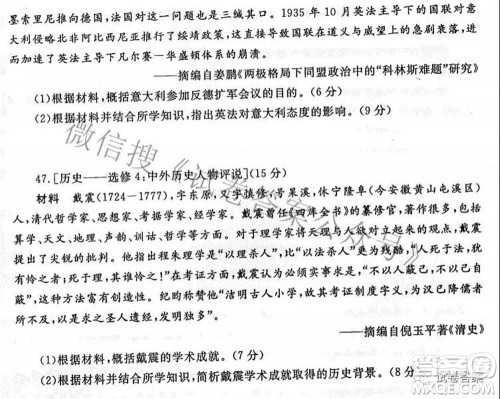 墨索里尼推向德国，法国对这一问题也是三缄其口。1935年10月英法主导下的国联对意
大利侵略北非阿比西尼亚推行了绥靖政策，这直接导致国联在道义与威望上的急剧衰落，进
而加速了英法主导下凡尔赛—华盛顿体系的崩溃。
——摘编自姜鹏《两极格局下同盟政治中的“科林斯难题”研究》
(1)根据材料，概括意大利参加反德扩军会议的目的。(6分)
(2)根据材料并结合所学知识，指出英法对意大利态度的影响。(9分)
47.[历史——选修4:中外历史人物评说](15分)
材料 戴震(1724—1777)，字东原，又字慎修，号杲溪，休宁隆阜(今安徽黄山屯溪区)
人，清代哲学家、思想家、考据学家、经学家。戴震曾任《四库全书》的纂修官，著作很多，包括
算学、天文、地理、声韵、训诂、哲学等方面。对于理学家将天理与人欲对立起来的观点，戴震
提出了尖锐的批评。他指出程朱理学是“以理杀人”，比“以法杀人”更为残酷，“人死于法，犹
有怜之者；死于理，其谁怜之！”在考证方面，戴震认为必须实事求是，“不以人蔽己，不以己自
蔽”，这种方法富有创造性。纪昀称赞他“洁明古人小学，故其考证制度字义，为汉巳降儒者
所不及，以是求之圣人遗经，发明独多”。
——摘编自倪玉平著《清史》
(1)根据材料，概括戴震的学术成就。(7分)
(2)根据材料并结合所学知识，简析戴震学术成就取得的历史背景。(8分)
微信搜《试卷答案公众号》
试卷答案